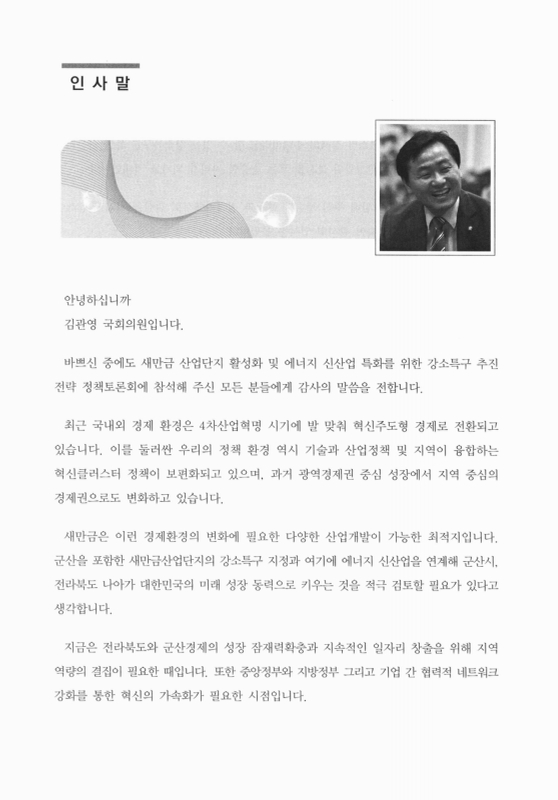 인 사 말
안녕하십니까
김관영 국회의원입니다.
바쁘신 중에도 새만금 산업단지 활성화 및 에너지 신산업 특화를 위한 강소특구 추진
전략 정책토론회에 참석해 주신 모든 분들에게 감사의 말씀을 전합니다.
최근 국내외 경제 환경은 4차산업혁명 시기에 발 맞춰 혁신주도형 경제로 전환되고
있습니다. 이를 둘러싼 우리의 정책 환경 역시 기술과 산업정책 및 지역이 융합하는
혁신클러스터 정책이 보편화되고 있으며, 과거 광역경제권 중심 성장에서 지역 중심의
경제권으로도 변화하고 있습니다.
새만금은 이런 경제환경의 변화에 필요한 다양한 산업개발이 가능한 최적지입니다.
군산을 포함한 새만금산업단지의 강소특구 지정과 여기에 에너지 신산업을 연계해 군산시,
전라북도 나아가 대한민국의 미래 성장 동력으로 키우는 것을 적극 검토할 필요가 있다고
생각합니다.
지금은 전라북도와 군산경제의 성장 잠재력확충과 지속적인 일자리 창출을 위해 지역
역량의 결집이 필요한 때입니다. 또한 중앙정부와 지방정부 그리고 기업 간 협력적 네트워크
강화를 통한 혁신의 가속화가 필요한 시점입니다.